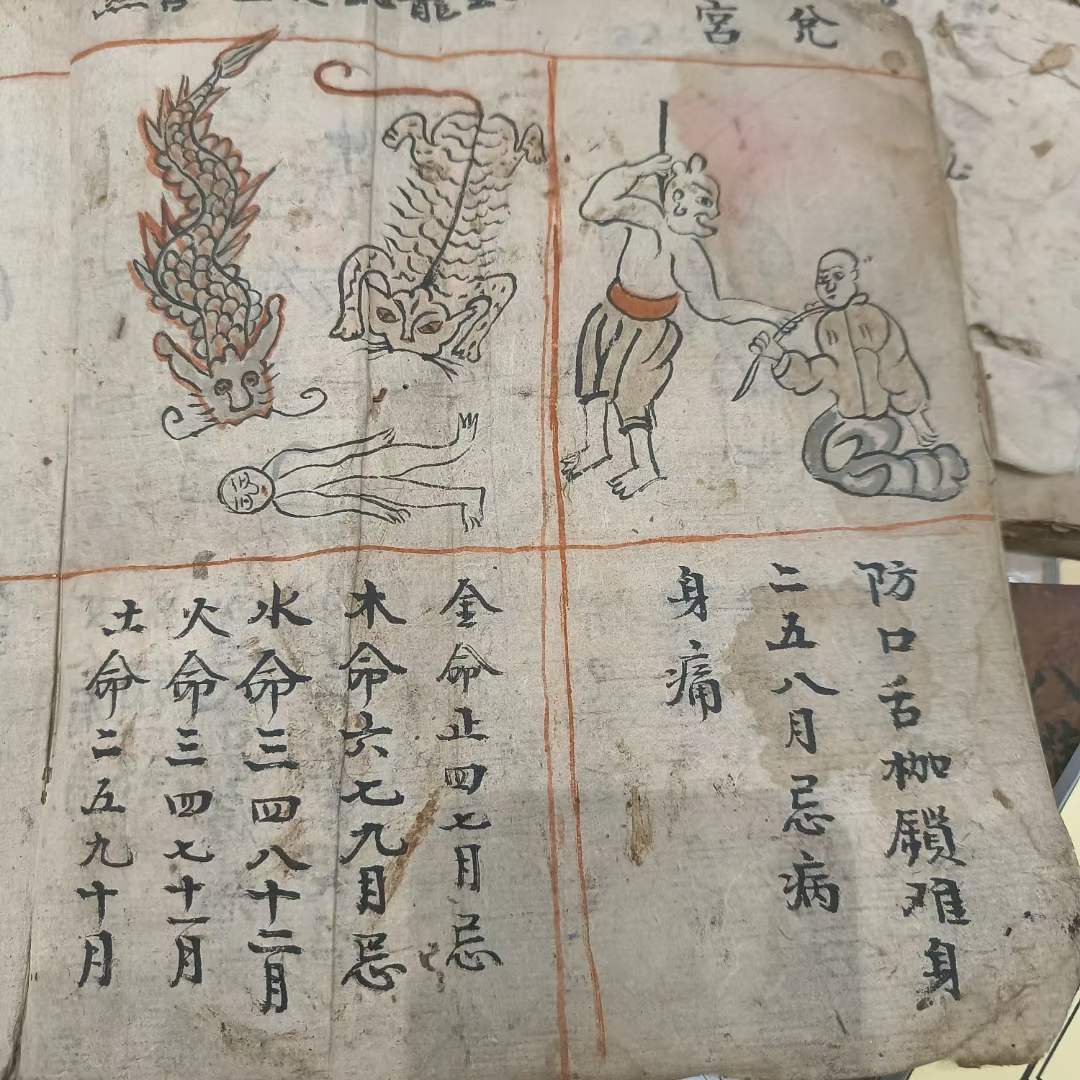 兌
宮
防口舌枷鎖难身
二五八月忌病
身痛
金命正四七月忌
木命六七九月忌
水命三四八十二月
火命三四七十一月
土命二五九十月